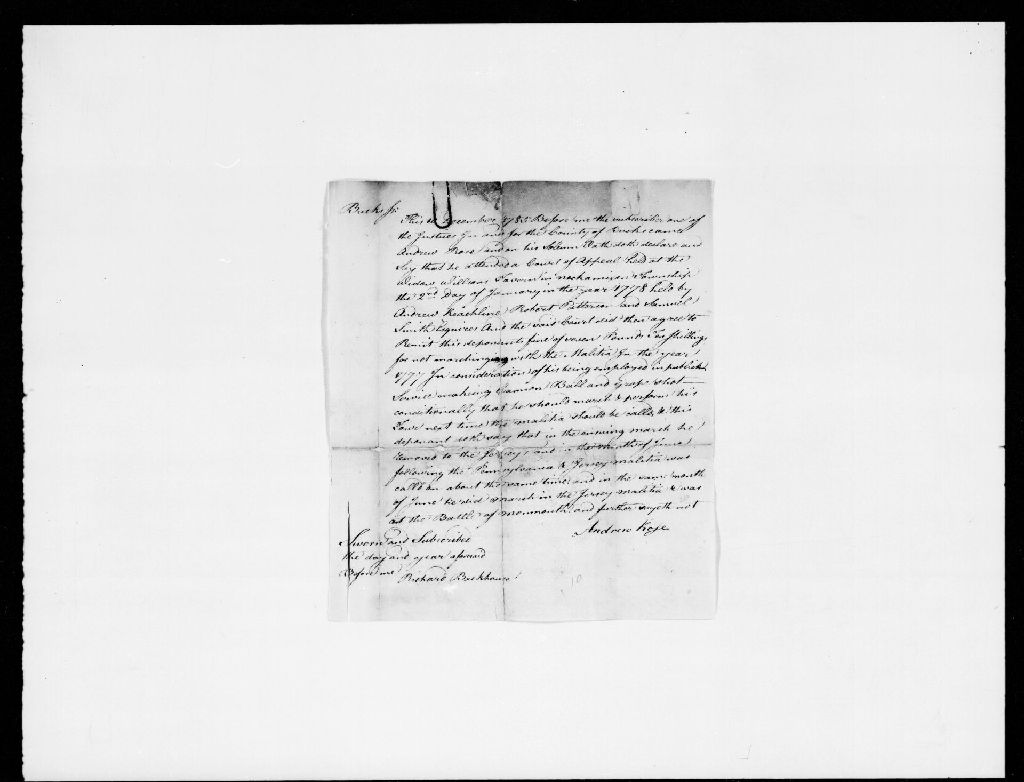 Bucks Ss
This 10 December 1785 Before me the subscriber one of
the Justices In and for the County of Bucks came
Andrew Rose and on his Solemn Oath doth declare and
Say that he attended a Court of Appeal held at the
Widow Williams Tavern in nockamixon Township
the 2nd Day of January in the year 1778 held by
Andrew Keachline Robert Patterson and Samuel
Smith Esquires And the said Court did then agree to
Remit this deponants fine of seven Pounds Ten shillings
for not marching with the Malitia In the year
1777 In consideration of his being employed in publick
Service making Cannon Ball and Grape shot
conditionally that he should march & perform his
Tower next time the malitia should be called & this
deponant doth say that in the ensuing march he
removed to the Jersey, and in the month of June
following the Pennsylvania & Jersey malitia was
calld on about the same time and in the same month
of June he did march in the Jersey malitia & was
at the Battle of monmouth, and further sayth not
Andrew Rose
Sworn and Subscribed
the day and year aforesaid
Before me
Richard Backhouse